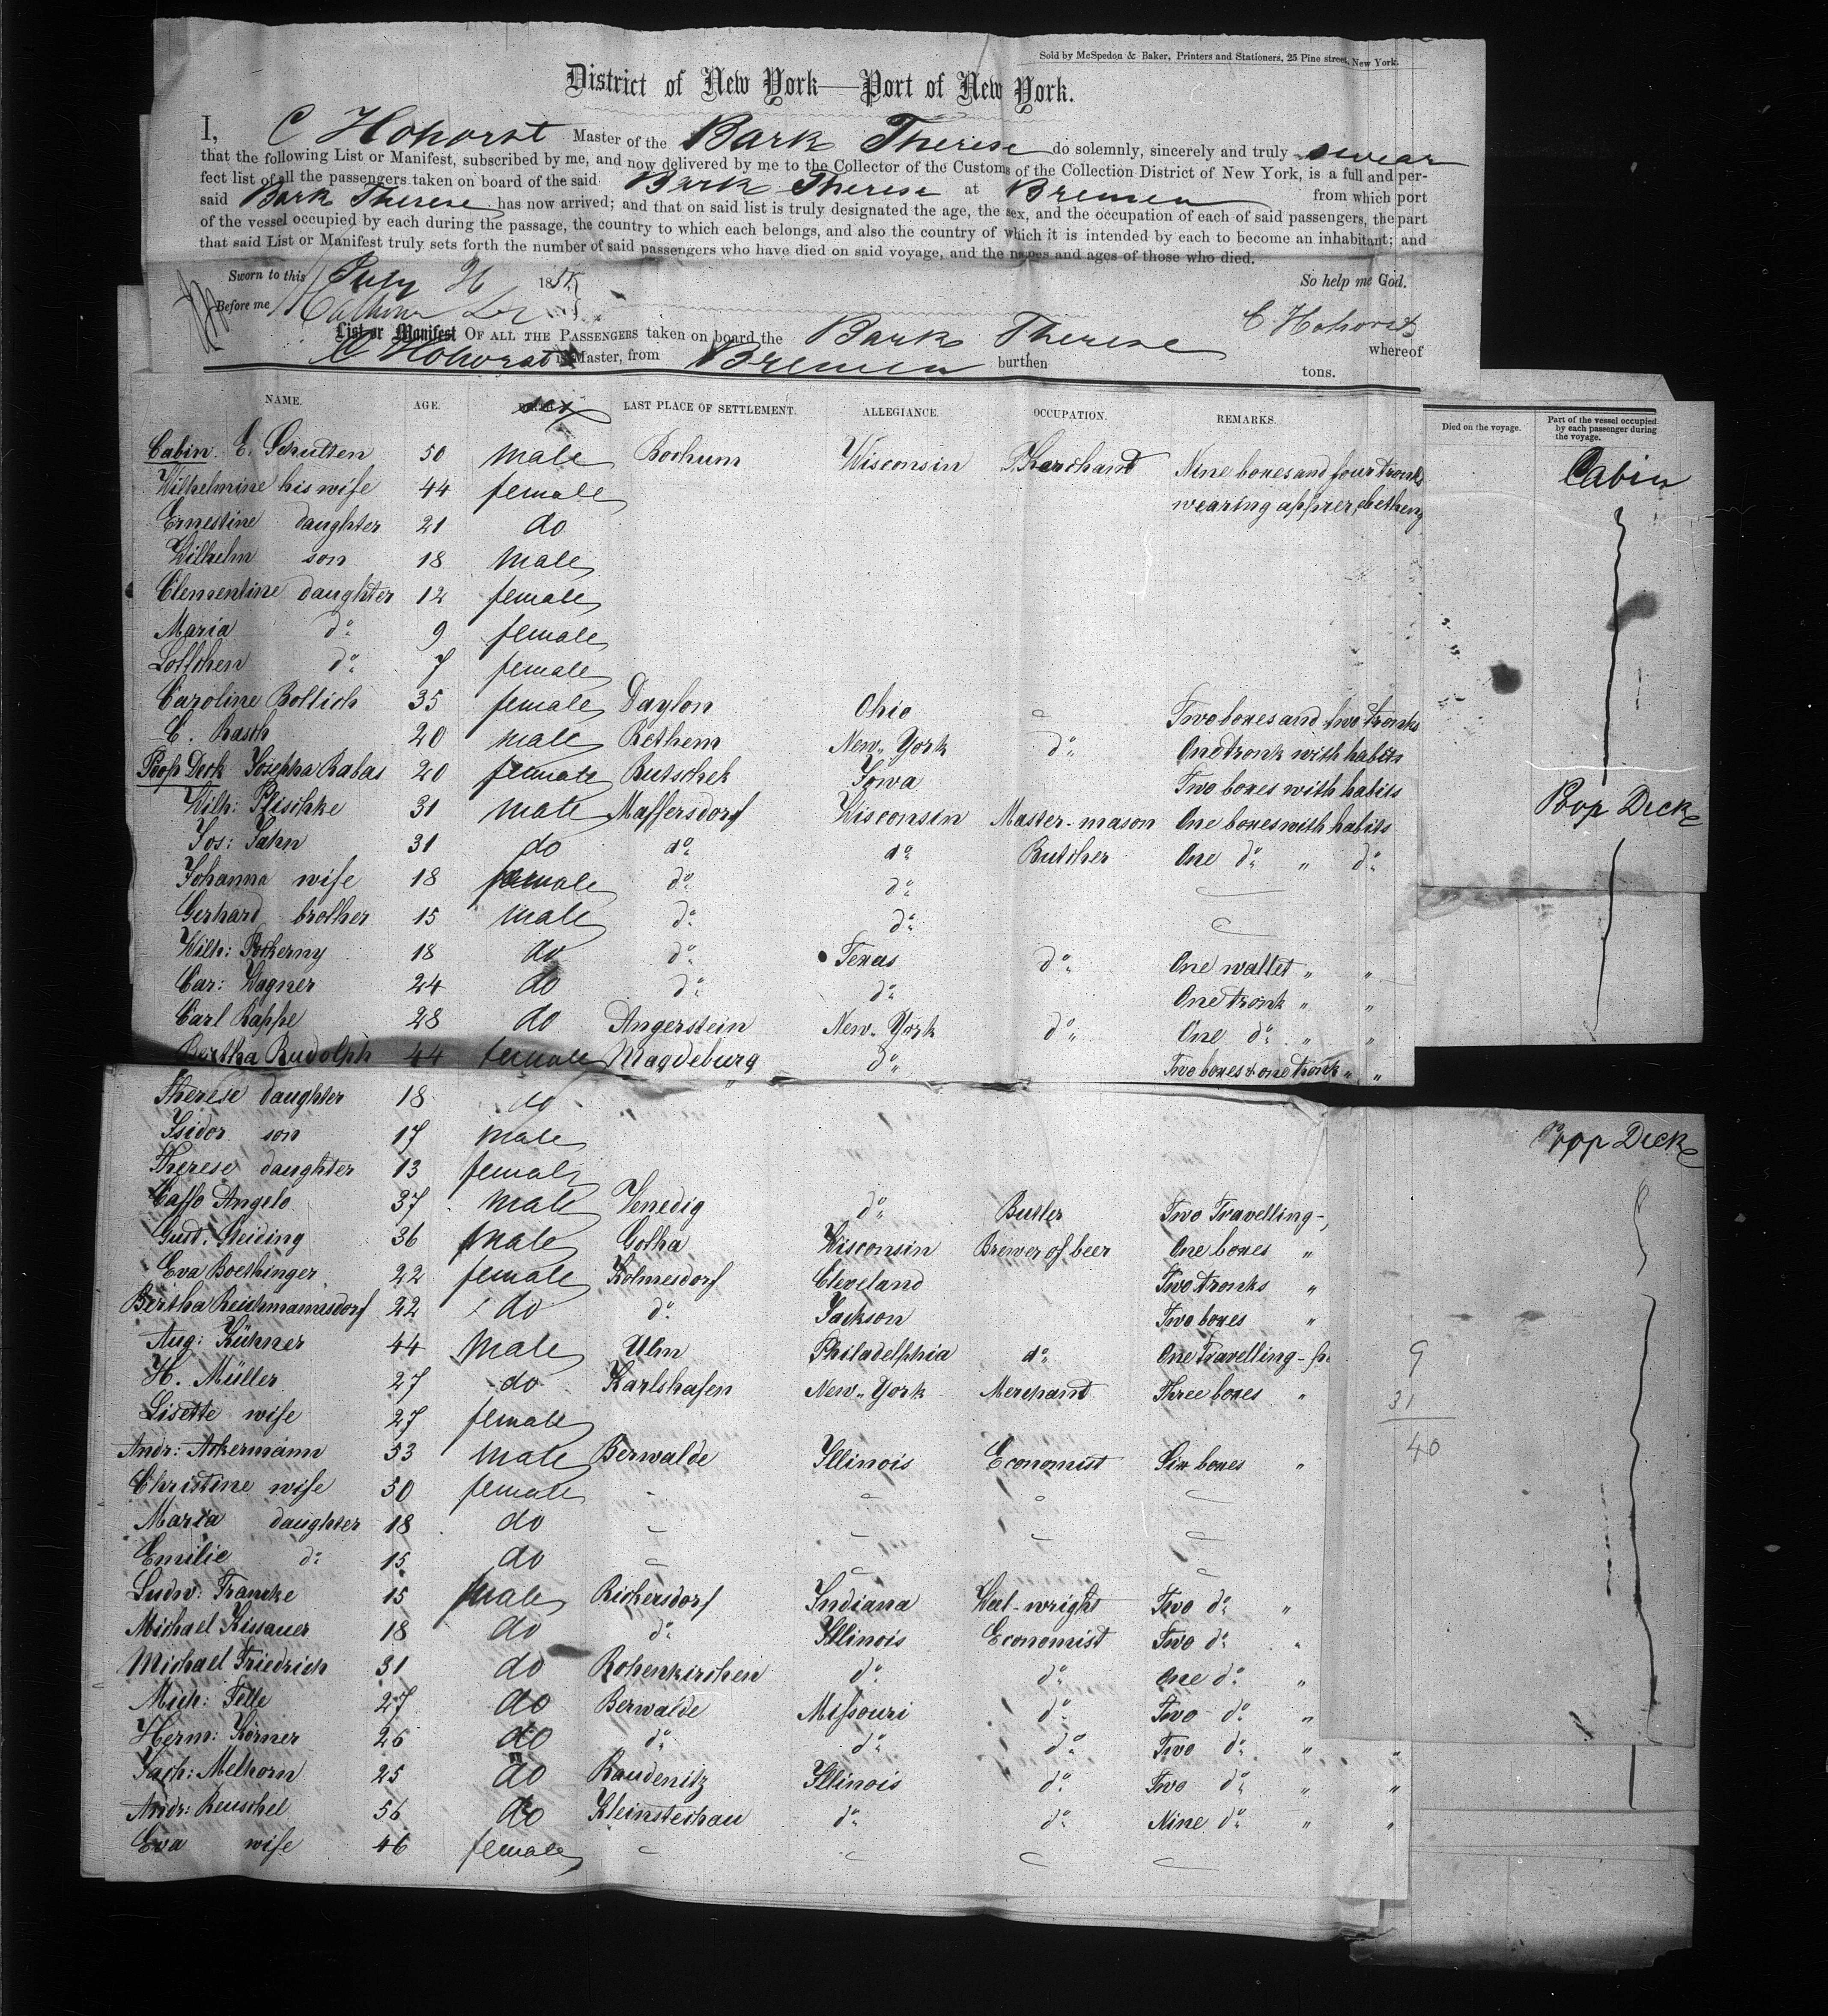 Sold by McSpedon & Baker, Printers and Stationers, 25 Pine street, New York.
District of New York—Port of New York.
I, C Hohorst Master of the Bark Therese do solemnly, sincerely and truly swear
that the following List or Manifest, subscribed by me, and now delivered by me to the Collector of the Customs of the Collection District of New York, is a full and per-
fect list of all the passengers taken on board of the said Bark Therese at Bremen from which port
said Bark Therese has now arrived; and that on said list is truly designated the age, the sex, and the occupation of each of said passengers, the part
of the vessel occupied by each during the passage, the country to which each belongs, and also the country of which it is intended by each to become an inhabitant; and
that said List or Manifest truly sets forth the number of said passengers who have died on said voyage, and the names and ages of those who died.
Sworn to this July 26 185 So help me God.
Before me C. Hohorst
List or Manifest OF ALL THE PASSENGERS taken on board the Bark Therese whereof
C Hohorst is Master, from Bremen burthen tons.
NAME. AGE. sex LAST PLACE OF SETTLEMENT. ALLEGIANCE. OCCUPATION. REMARKS. Died on the voyage. Part of the vessel occupied by each passenger during the voyage.
Cabin. E. Schulten 50 male Bochum Wisconsin Nine boxes and four tronks Cabin
Wilhelmine his wife 44 female wearing
Ernestine daughter 21 do
Wilhelm son 18 male
Clementine daughter 12 female
Maria do 9 female
Lottchen do 7 female
Caroline Bottich 35 female Dayton Ohio Two boxes and two tronks
C. Rasch 20 male Rethem New-York do One tronk with habits
Poop Deck Josepha Rabas 20 female Butschek Iowa Two boxes with habits
Wilh: Plischke 31 male Maffersdorf Wisconsin Master-mason One boxes with habits Poop Deck
Jos: Jahn 31 do do do Butcher One do " do
Johanna wife 18 female do do
Gerhard brother 15 male do do
Wilh: Pokerny 18 do do Texas do One wallet " "
Car: Wagner 24 do do do One tronk " "
Carl Kappe 28 do Angerstein New-York do One do " "
Bertha Rudolph 44 female Magdeburg do Two boxes & one tronk " "
Therese daughter 18 do
Isidor son 17 male Poop Deck
Therese daughter 13 female
Caffo Angelo 37 male Venedig do Butler Two Travelling-
Gust. Steiding 36 male Gotha Wisconsin Brewer of beer One boxes "
Eva Boethinger 22 female Kolmesdorf Cleveland Two tronks "
Bertha Reichmannsdorf 22 do do Jackson Two boxes "
Aug: Kühner 44 male Ulm Philadelphia do One Travelling- 9
H. Müller 27 do Karlshafen New-York Merchant Three boxes " 31
Lisette wife 27 female 40
Andr: Ackermann 53 male Berwalde Illinois Economist Six boxes "
Christine wife 50 female
Maria daughter 18 do
Emilie do 15 do
Ludw: Francke 15 male Rickersdorf Indiana Weel-wright Two do "
Michael Kissauer 18 do do Illinois Economist Two do "
Michael Friedrich 31 do Rohenkirchen do do One do "
Mich: Felle 27 do Berwalde Missouri do Two do "
Herm: Körner 26 do do do do Two do " "
Zach: Melhorn 25 do Raudenitz Illinois do Two do " "
Andr: Reuschel 56 do Kleinstechau do do Nine do " "
Eva wife 46 female